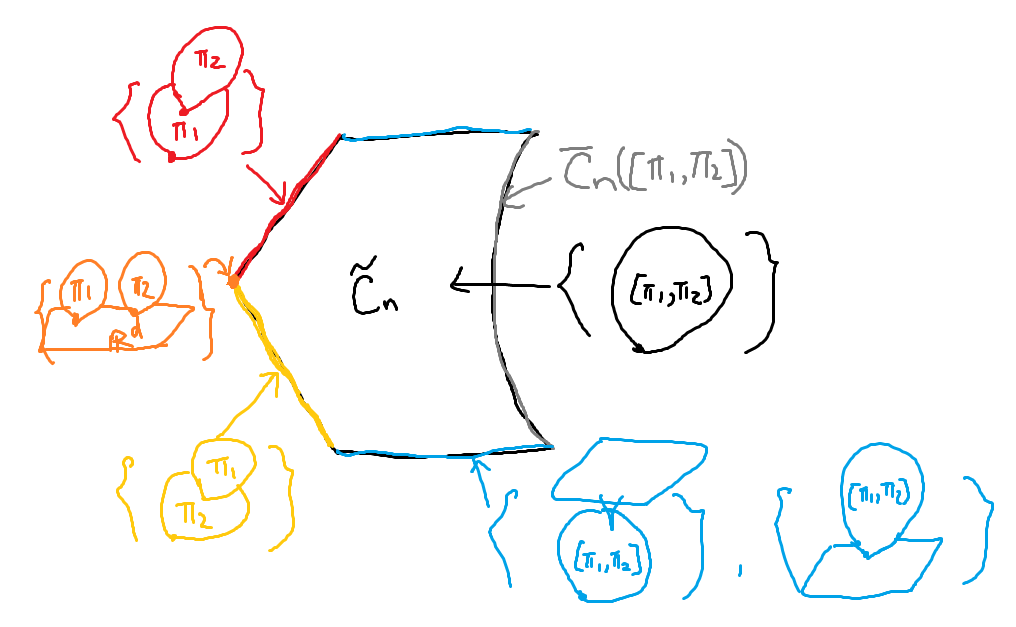 π2
π1
C̄n([π1,π2])
π1 π2
ℝd
C̃n
{[π1,π2]}
π1
π2
[π1,π2] , [π1,π2]